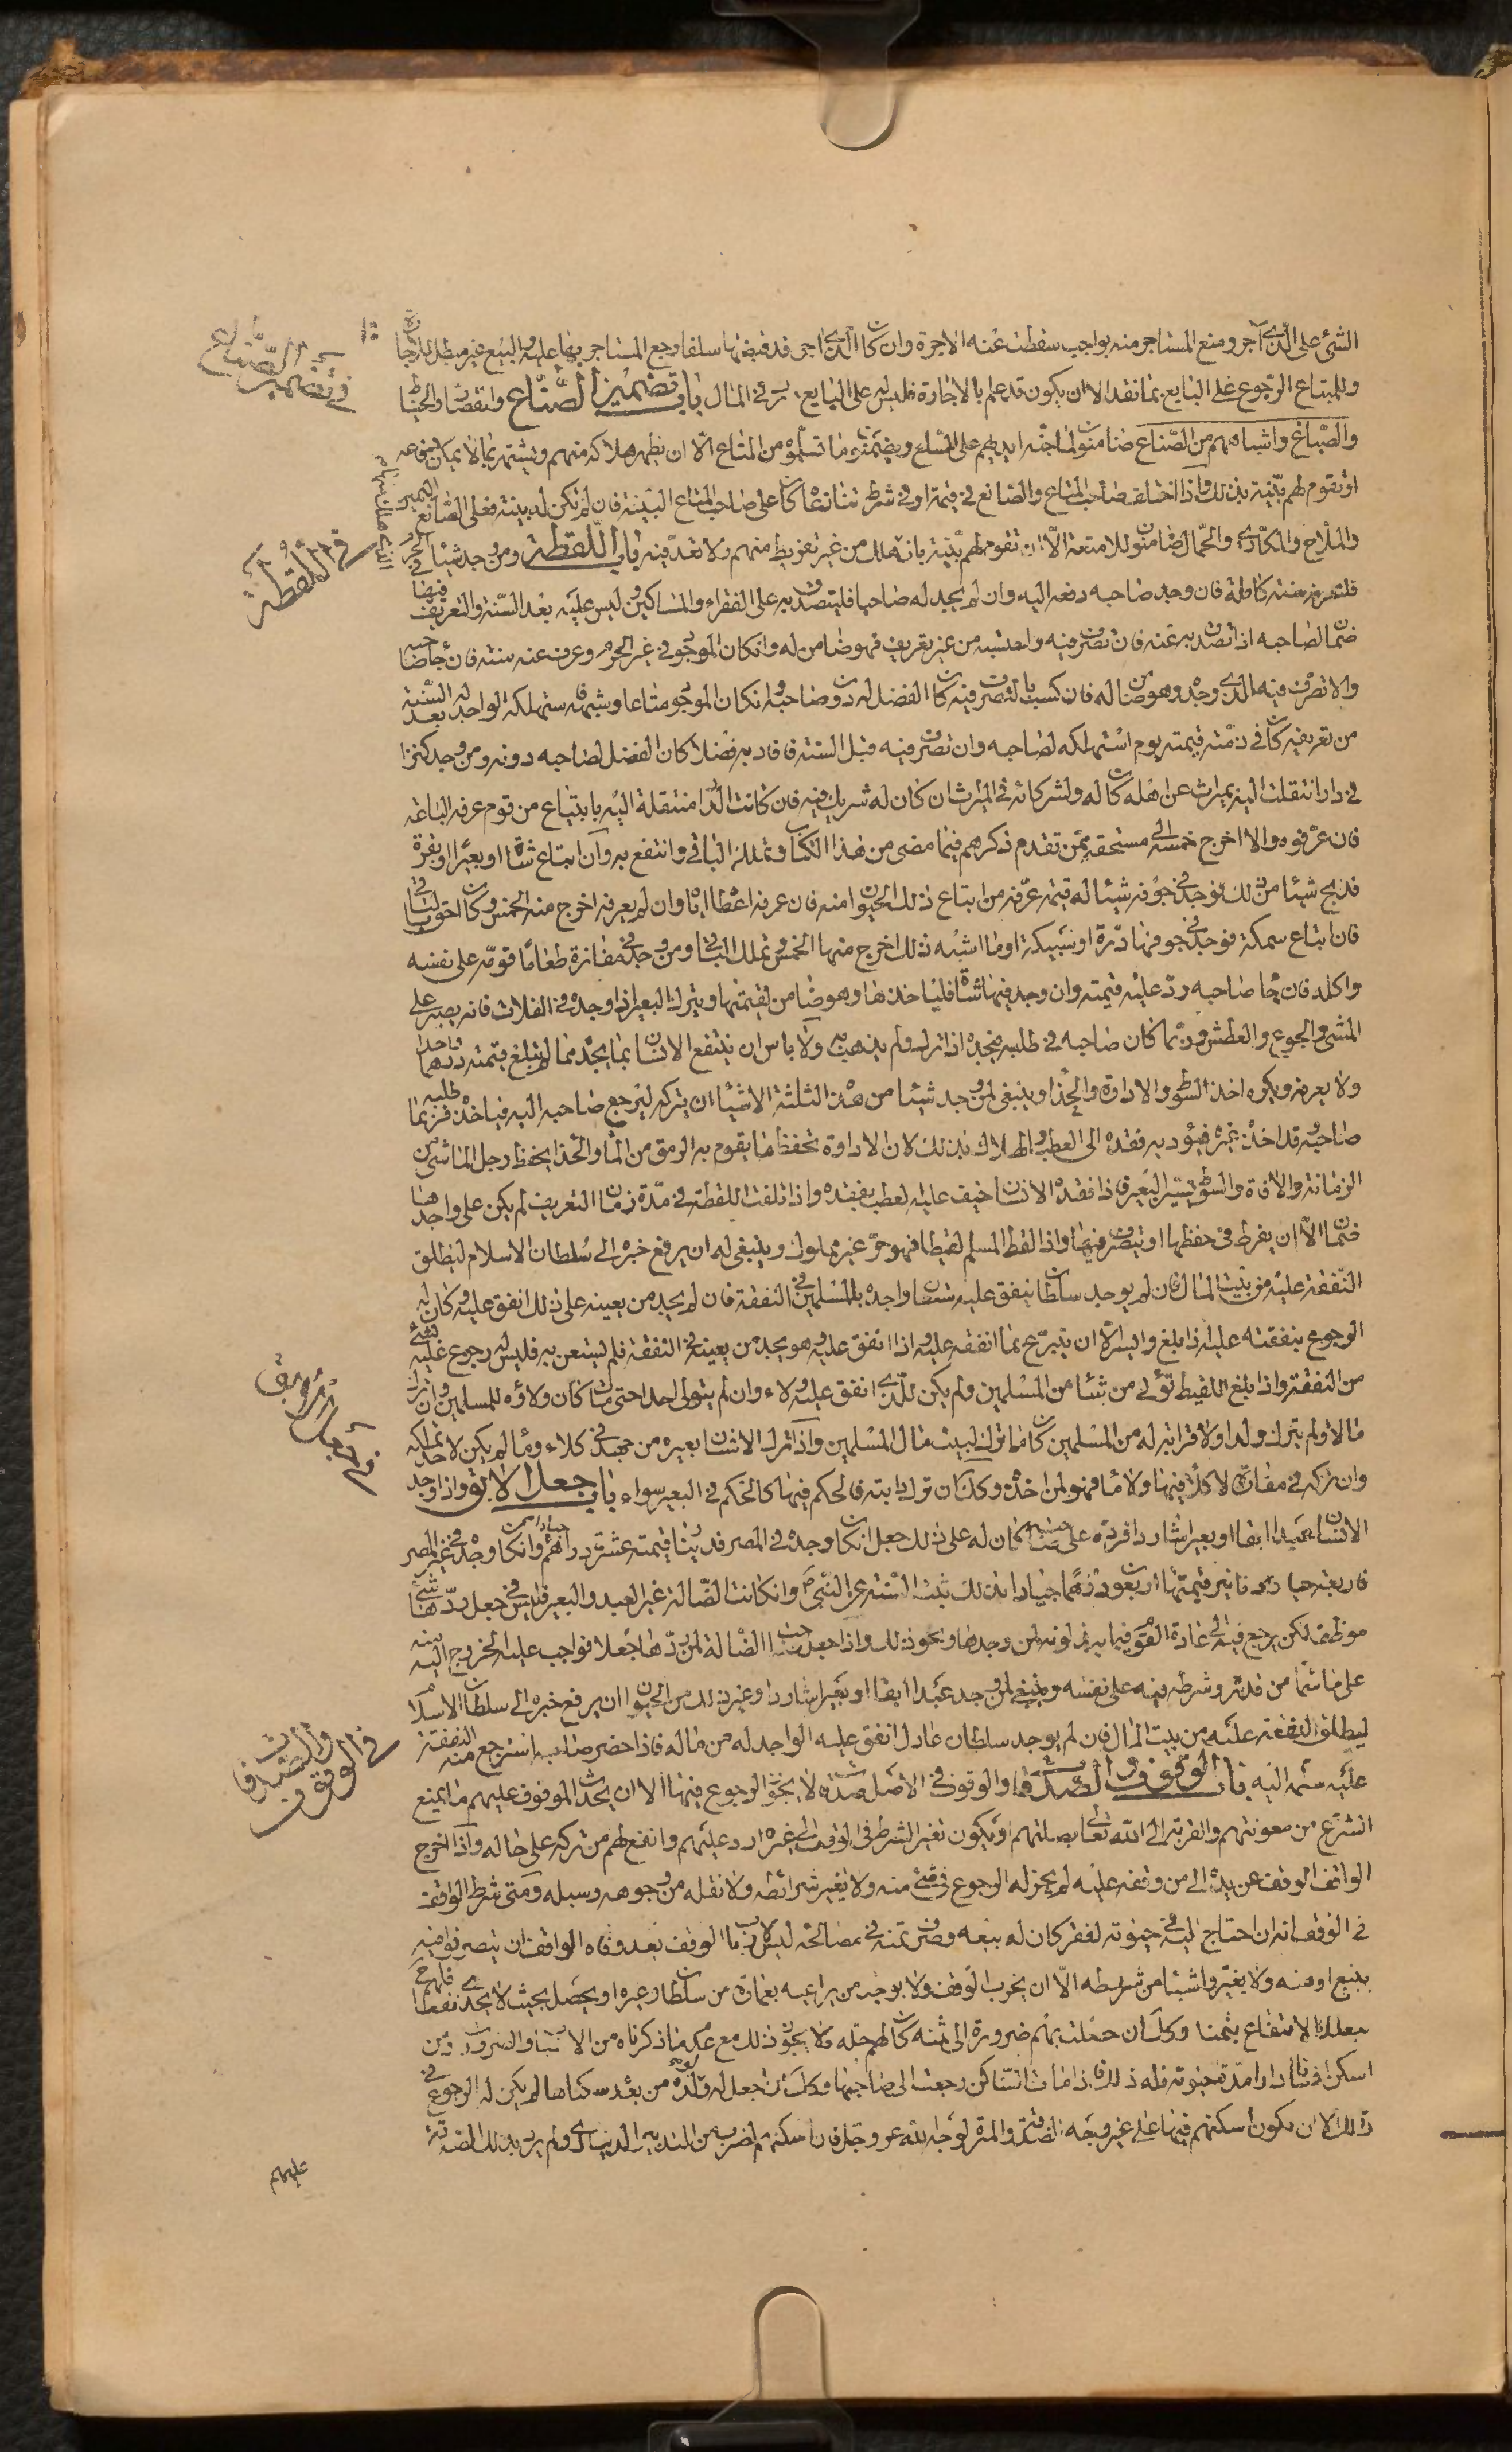 الشئ على الذي آجر ومنع المستاجر منه بواجب سقطت عنه الاجرة وان كان الذي اجر قد قبضها سلفا رجع المستاجر بها عليه والبيع غير مبطل للاجارة
وللمبتاع الرجوع على البايع بما نقد الا ان يكون قد علم بالاجارة فليس له على البايع في المال باب تضمين الصناع والقصار والخياط
والصباغ واشباههم من الصناع ضامنون لما جنته ايديهم على السلع ويضمنون ما تسلموه من المتاع الا ان يظهر هلاكه منهم ويشتهر بما لا يمكن دفاعه
او تقوم لهم بينة بذلك واذا اختلف صاحب المتاع والصانع في قيمته او في شرط تنازعا كان على صاحب المتاع البينة فان لم تكن له بينة فعلى الصانع اليمين
والملاح والمكاري والحمال ضامنون للامتعة الا ان تقوم لهم بينة بانه هلك من غير تفريط منهم ولا تعد فيه باب اللقطة ومن وجد شيئا في الحرم
فليعرفه سنة كاملة فان وجد صاحبه دفعه اليه وان لم يجد له صاحبا فليتصدق به على الفقراء والمساكين وليس عليه بعد السنة والتعريف فيها
ضمان لصاحبه اذا تصدق به عنه فان تصرف فيه واحتسبه من غير تعريف فهو ضامن له وان كان الموجود في غير الحرم وعرف عنه سنة فان جاء صاحبه
والا تصرف فيه الذي وجده وهو ضامن له فان كسب بالتصرف فيه كان الفضل له دون صاحبه وان كان الموجود متاعا وشبهه فاستهلكه الواجد له بعد السنة
من تعريفه كان في ذمته قيمته يوم استهلكه لصاحبه وان تصرف فيه قبل السنة فافاد به فضلا كان الفضل لصاحبه دونه ومن وجد كنزا
في دار انتقلت اليه بميراث عن اهله كان له ولشركائه في الميراث ان كان له شريك فيه فان كانت الدار منتقلة اليه بابتياع من قوم عرفه البائعه
فان عرفوه والا اخرج خمسه الى مستحقه ممن تقدم ذكرهم فيما مضى من هذا الكتاب وتملك الباقي وانتفع به وان ابتاع شاة او بعيرا او بقرة
فذبح شيئا من ذلك فوجد في جوفه شيئا له قيمة عرفه من ابتاع ذلك الحيوان منه فان عرفه اعطاه اياه وان لم يعرفه اخرج منه الخمس وكان احق بالباقي
فان ابتاع سمكة فوجد في جوفها درة او سبيكة او ما اشبه ذلك اخرج منها الخمس وتملك الباقي ومن وجد في مفازة طعاما قومه على نفسه
واكله فان جاء صاحبه رد عليه قيمته وان وجد فيها شاة فلياخذها وهو ضامن لقيمتها ويترك البعير اذا وجده في الفلات فانه يصبر على
المشى والجوع والعطش وربما كان صاحبه في طلبه فيجده اذا ترك ولم يذهب به ولا باس ان ينتفع الانسان بما يجده مما لم تبلغ قيمته درهما واحدا
ولا يعرفه ويكره اخذ السوط والاداوة والحذاء وينبغي لمن وجد شيئا من هذه الثلثة الاشياء ان يتركه ليرجع صاحبه اليه فياخذه فربما طلبه
صاحبه وقد اخذه غيره فيؤديه فقده الى العطب والهلاك بذلك لان الاداوة تحفظ ما يقوم به الرمق من الماء والحذاء يحفظ رجل الماشي من
الزمانة والافة والسوط يسير البعير فاذا فقده الانسان خيف عليه العطب بفقده واذا تلفت اللقطة في مدة زمان التعريف لم يكن على واجدها
ضمان الا ان يفرط في حفظها او يتصرف فيها واذا التقط المسلم لقيطا فهو حر غير مملوك وينبغي له ان يرفع خبره الى سلطان الاسلام ليطلق
النفقة عليه من بيت المال فان لم يوجد سلطان ينفق عليه استعان واجده بالمسلمين في النفقة فان لم يجد من يعينه على ذلك انفق عليه وكان له
الرجوع بنفقته عليه اذا بلغ وايسر الا ان يتبرع بما انفقه عليه واذا انفق عليه وهو يجد من يعينه في النفقة فلم يستعن به فليس له رجوع عليه بشئ
من النفقة واذا بلغ اللقيط تولى من شاء من المسلمين ولم يكن للذي انفق عليه ولاء وان لم يتول احدا حتى مات كان ولاؤه للمسلمين وان ترك
مالا ولم يترك ولدا ولا قرابة له من المسلمين كان ما تركه لبيت مال المسلمين واذا ترك الانسان بعيره من جهد في كلاء وماء لم يكن لاحد تملكه
وان تركه في مفازة لا كلأ فيها ولا ماء فهو لمن اخذه وكذلك ان ترك دابته فالحكم فيها كالحكم في البعير سواء باب جعل الابق واذا وجد
الانسان عبدا ابقا او بعيرا شاردا فرده على صاحبه كان له على ذلك جعل ان كان وجده في المصر فدينار قيمته عشرة دراهم جيادا وان كان وجده في غير المصر
فاربعة دنانير قيمتها اربعون درهما جيادا بذلك ثبتت السنة عن النبي ص وان كانت الضالة غير العبد والبعير فليس في جعل ردها شئ
موظف لكن يرجع فيه الى عادة القوم فيما يبذلونه لمن وجدها ونحو ذلك واذا جعل صاحب الضالة لمن ردها جعلا فواجب عليه الخروج اليه منه
على ما سماه من قدره وشرطه فيه على نفسه وينبغي لمن وجد عبدا ابقا او بعيرا شاردا وغير ذلك من الحيوان ان يرفع خبره الى سلطان الاسلام
ليطلق النفقة عليه من بيت المال فان لم يوجد سلطان عادل انفق عليه الواجد له من ماله فاذا حضر صاحبه استرجع منه النفقة
عليه سلمه اليه باب الوقوف والصدقات والوقوف في الاصل صدقة لا يجوز الرجوع فيها الا ان يحدث الموقوف عليهم ما يمنع
الشرع من معونتهم والقربة الى الله تعالى بصلتهم او يكون تغير الشرط في الوقف الى غيره ارد عليهم وانفع لهم من تركه على حاله واذا اخرج
الواقف الوقف عن يده الى من وقفه عليه لم يجز له الرجوع في شئ منه ولا تغير شرائطه ولا نقله من وجوهه وسبله ومتى شرط الواقف
في الوقف انه ان احتاج اليه في حيوته لفقر كان له بيعه وصرف ثمنه في مصالحه وليس لارباب الوقف بعد وفاة الواقف ان يتصرفوا فيه
ببيع او هبة ولا يغيروا شيئا من شروطه الا ان يخرب الوقف ولا يوجد من يراعيه بعمارة من سلطان وغيره او يحصل بحيث لا يجدى نفعا فلهم ح
بيعه والانتفاع بثمنه وكذلك ان حصلت بهم ضرورة الى ثمنه كان لهم حله ولا يجوز ذلك مع عدم ما ذكرناه من الاسباب والضرورات ومن
اسكن انسانا دارا مدة حيوته فله ذلك فاذا مات الساكن رجعت الى صاحبها وكذلك ان جعل له ولولده من بعده سكناها لم يكن له الرجوع في
ذلك الا ان يكون اسكنهم فيها على غير وجه الصدقة والمبرة لوجه الله عز وجل فان اسكنهم لضرب من التدبير الدنياوي ولم يرد بذلك الصدقة
عليهم
في تضمين الصناع
في اللقطة
في جعل الابق
في الوقوف والصدقات